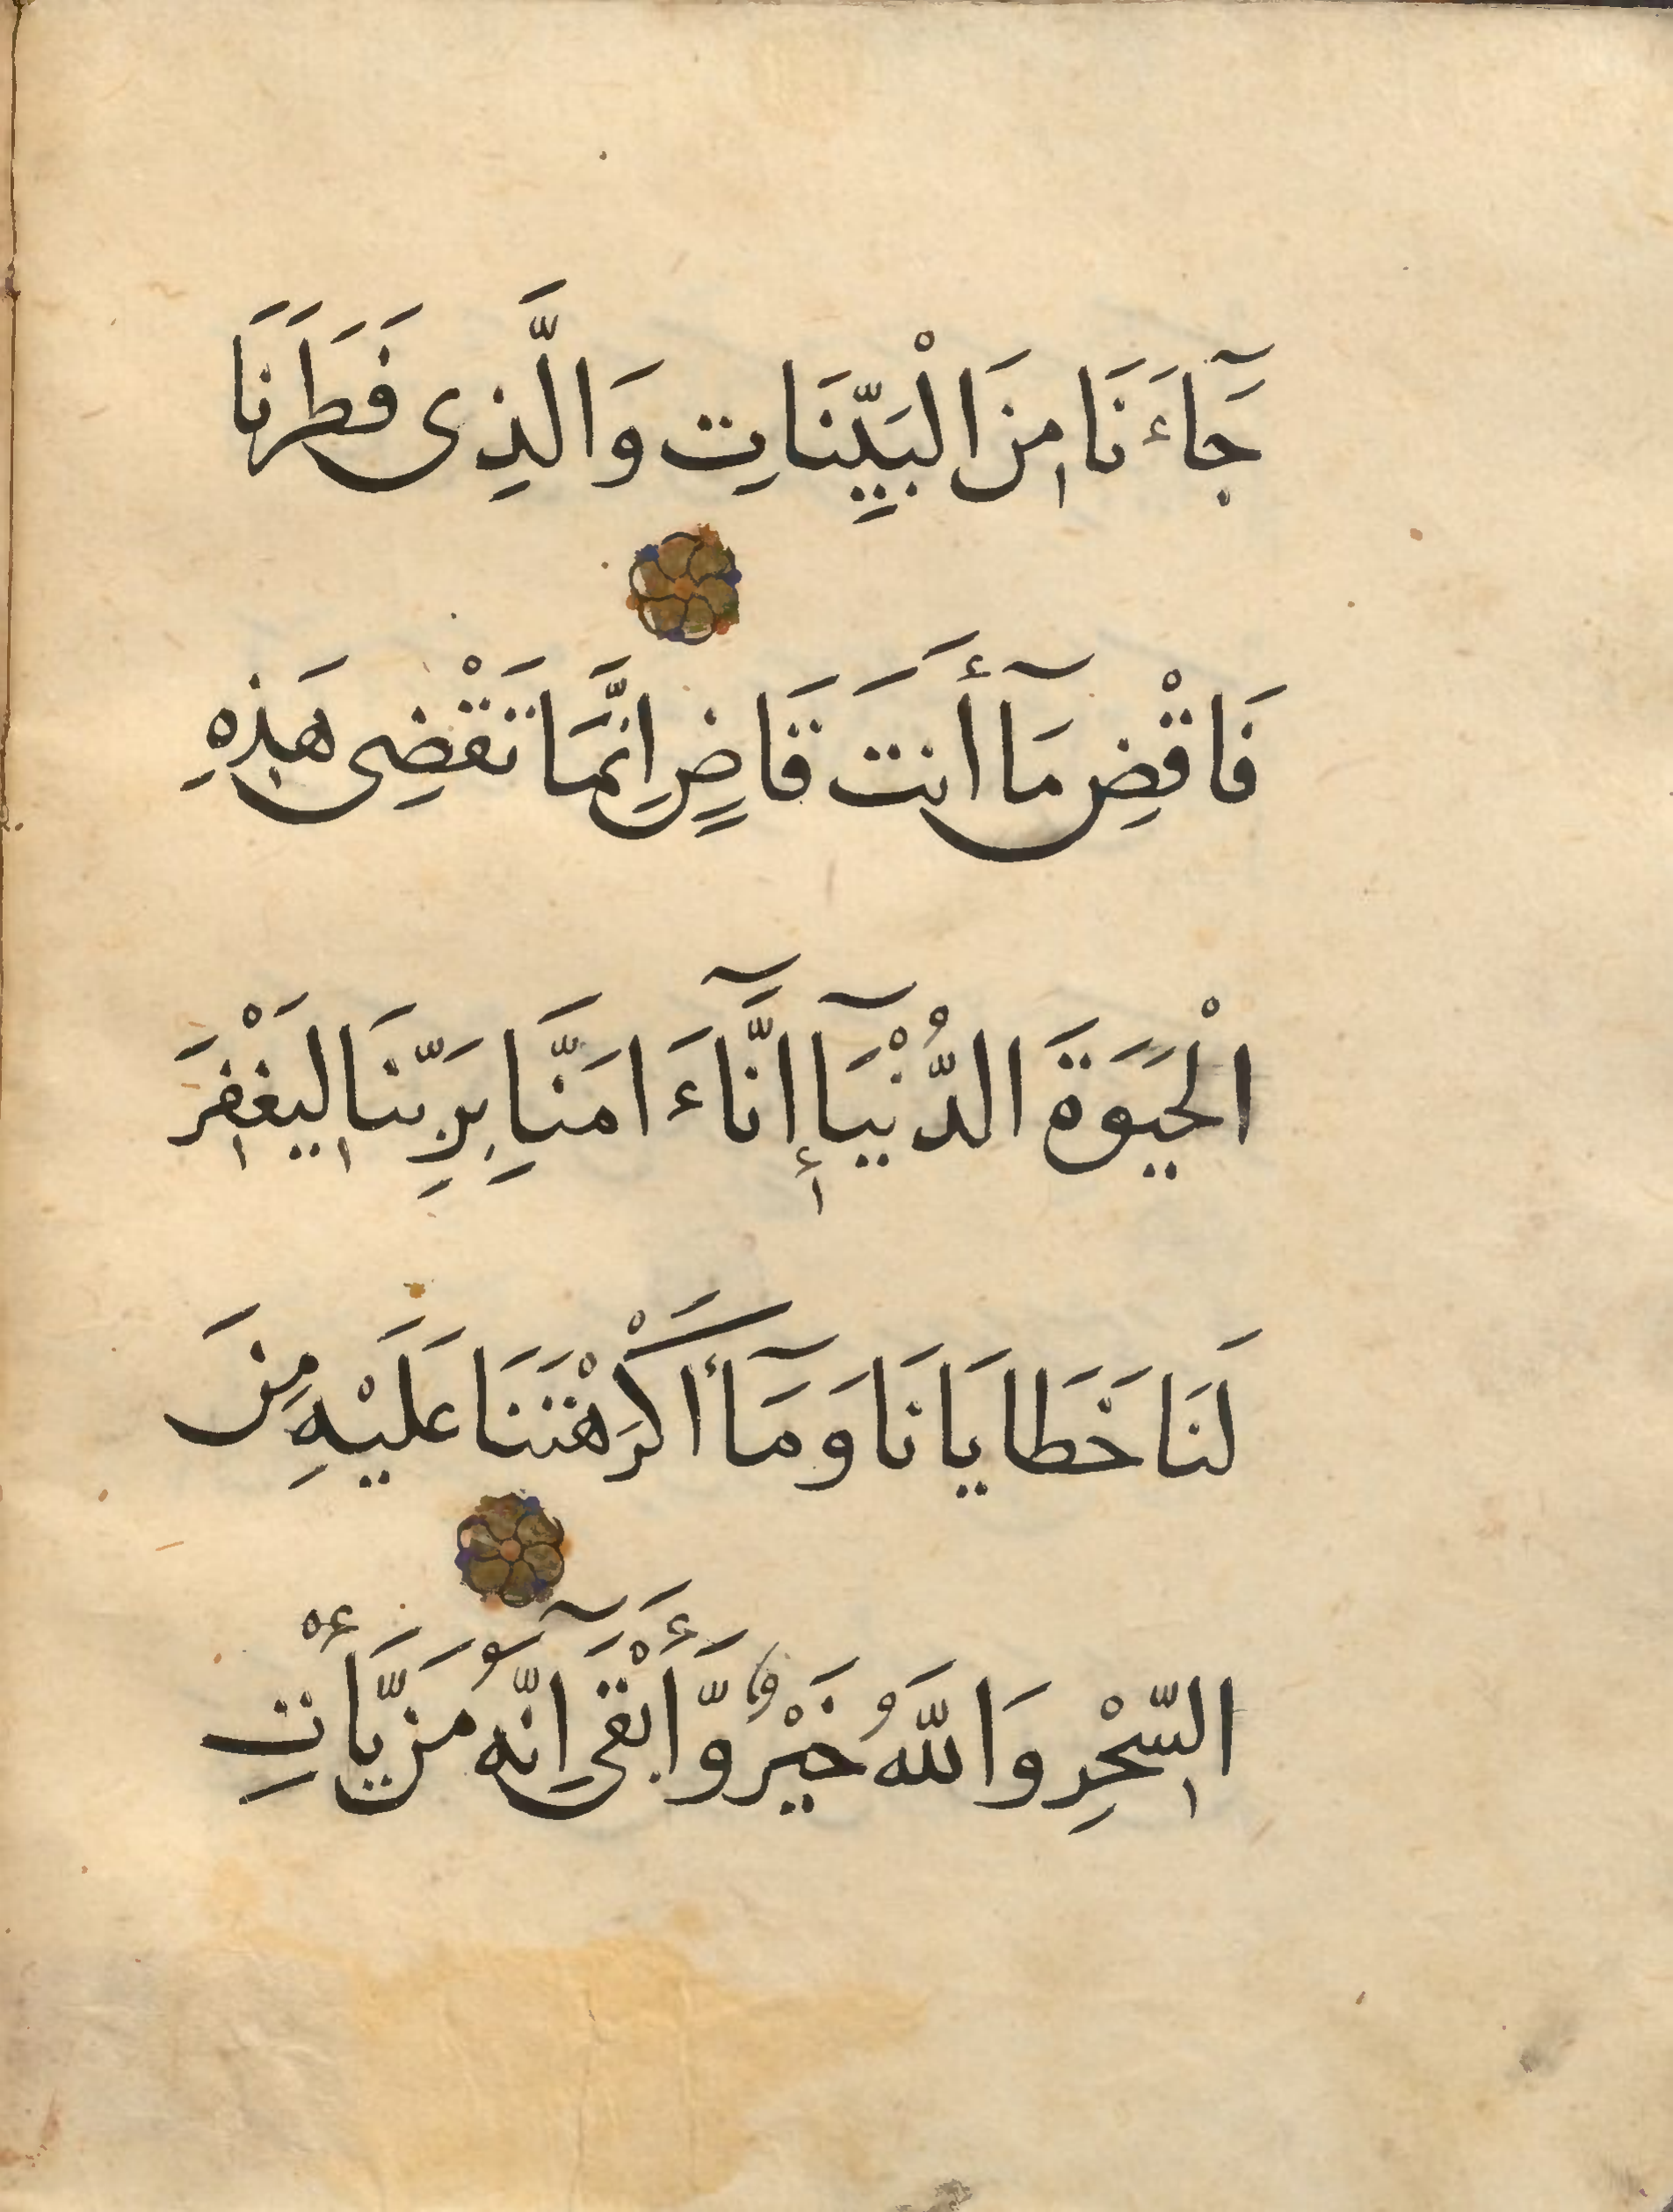 جَآءَنَا مِنَ الْبَيِّنَاتِ وَالَّذِى فَطَرَنَا
فَاقْضِ مَآ أَنتَ قَاضٍ اِنَّمَا تَقْضِى هَذِهِ
الْحَيَوةَ الدُّنْيَآ إِنَّآ ءَامَنَّا بِرَبِّنَا لِيَغْفِرَ
لَنَا خَطَايَانَا وَمَآ أَكْرَهْتَنَا عَلَيْهِ مِنَ
السِّحْرِ وَاللَّهُ خَيْرٌ وَّأَبْقَىٓ اِنَّهُ مَن يَّأْتِ